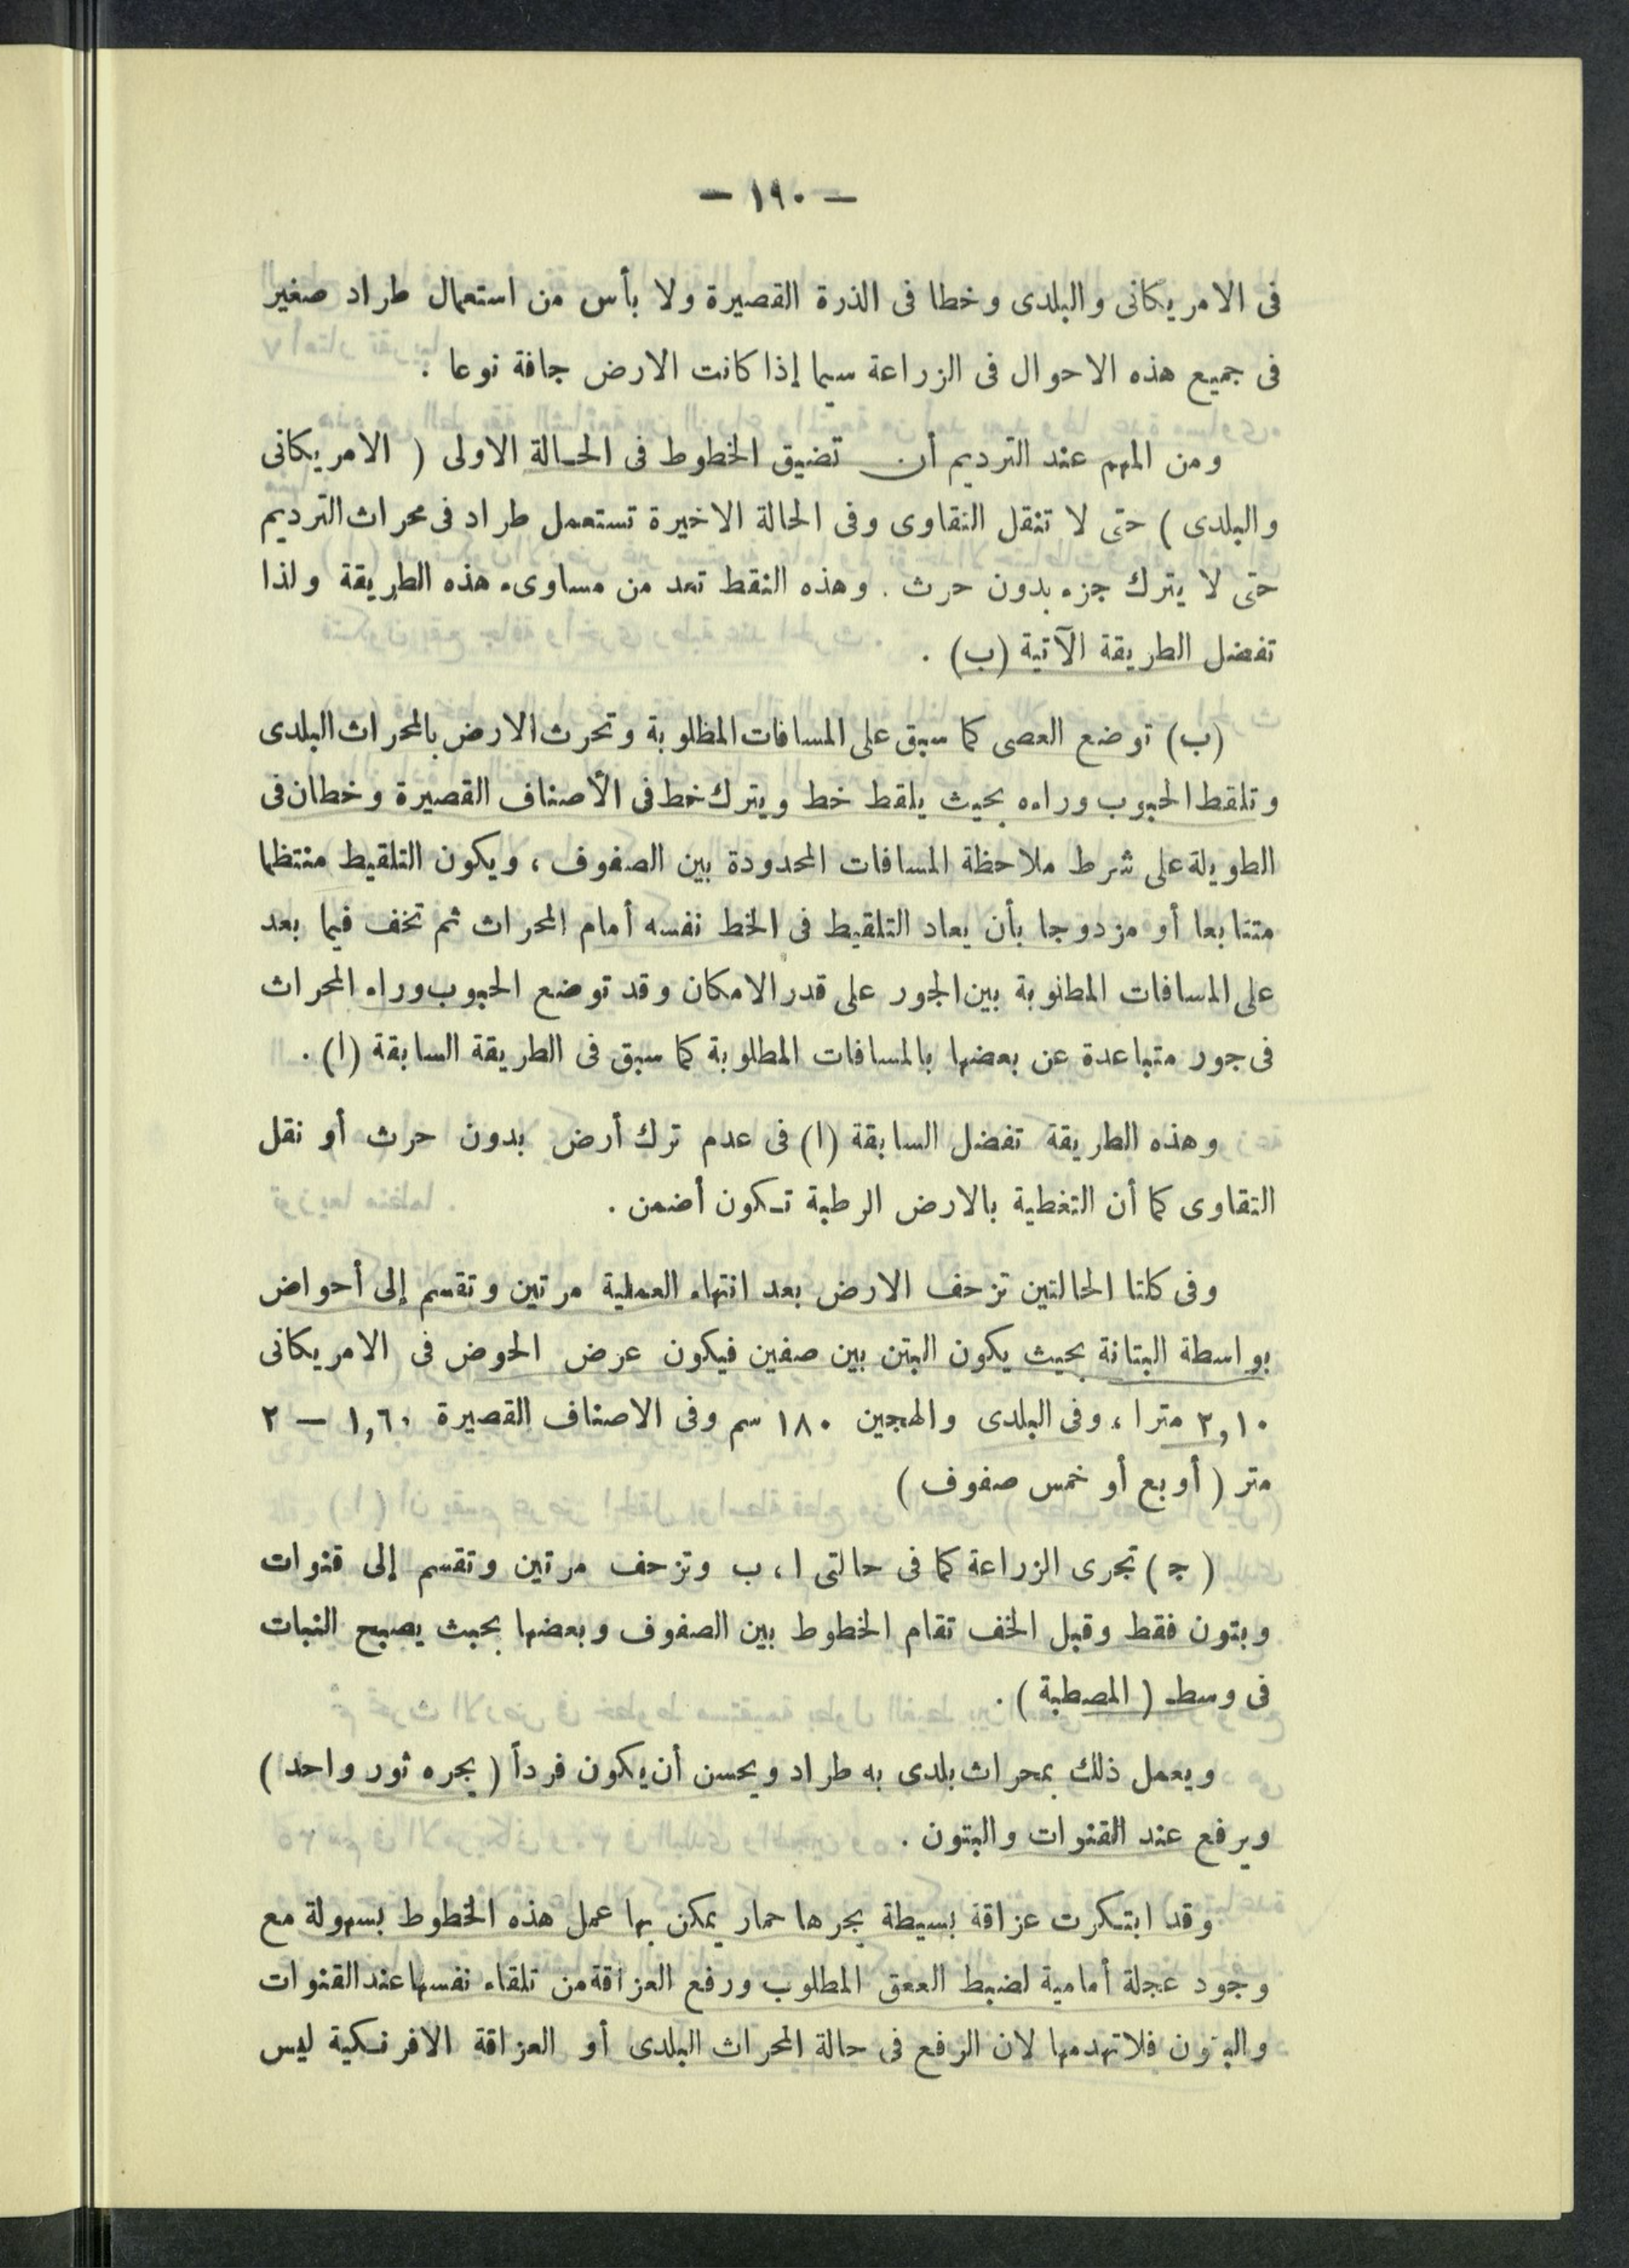 — ١٩٠ —
فى الامريكانى والبلدى وخطا فى الذرة القصيرة ولا بأس من استعمال طراد صغير
فى جميع هذه الاحوال فى الزراعة سيما إذا كانت الارض جافة نوعا .
ومن المهم عند الترديم أن تضيق الخطوط فى الحالة الاولى ( الامريكانى
والبلدى ) حتى لا تنقل التقاوى وفى الحالة الاخيرة تستعمل طراد فى محراث الترديم
حتى لا يترك جزء بدون حرث . وهذه النقط تعد من مساوىء هذه الطريقة ولذا
تفضل الطريقة الآتية (ب) .
(ب) توضع العصى كما سبق على المسافات المظلوبة وتحرث الارض بالمحراث البلدى
وتلقط الحبوب وراءه بحيث يلقط خط ويترك خط فى الأصناف القصيرة وخطان فى
الطويلة على شرط ملاحظة المسافات المحدودة بين الصفوف ، ويكون التلقيط منتظما
متتابعا أو مزدوجا بأن يعاد التلقيط فى الخط نفسه أمام المحراث ثم تخف فيما بعد
على المسافات المطلوبة بين الجور على قدر الامكان وقد توضع الحبوب وراء المحراث
فى جور متباعدة عن بعضها بالمسافات المطلوبة كما سبق فى الطريقة السابقة (ا) .
وهذه الطريقة تفضل السابقة (ا) فى عدم ترك أرض بدون حرث أو نقل
التقاوى كما أن التغطية بالارض الرطبة تكون أضمن .
وفى كلتا الحالتين تزحف الارض بعد انتهاء العملية مرتين وتقسم إلى أحواض
بواسطة البتانة بحيث يكون البتن بين صفين فيكون عرض الحوض فى الامريكانى
٢,١٠ مترا ، وفى البلدى والهجين ١٨٠ سم وفى الاصناف القصيرة ١,٦٠ — ٢
متر ( أوبع أو خمس صفوف )
( ج ) تجرى الزراعة كما فى حالتى ا ، ب وتزحف مرتين وتقسم إلى قنوات
وبتون فقط وقبل الخف تقام الخطوط بين الصفوف وبعضها بحيث يصبح النبات
فى وسط ( المصطبة ) .
ويعمل ذلك بمحراث بلدى به طراد ويحسن أن يكون فرداً ( يجره ثور واحد )
ويرفع عند القنوات والبتون .
وقد ابتكرت عزاقة بسيطة يجرها حمار يمكن بها عمل هذه الخطوط بسهولة مع
وجود عجلة أمامية لضبط العمق المطلوب ورفع العزاقة من تلقاء نفسها عند القنوات
والبتون فلا تهدمها لان الرفع فى حالة المحراث البلدى أو العزاقة الافرنكية ليس